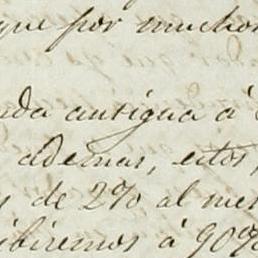 que por muchos
nda antigua á
ademas, estos,
s de 2% al mes
ibiremos á 90%